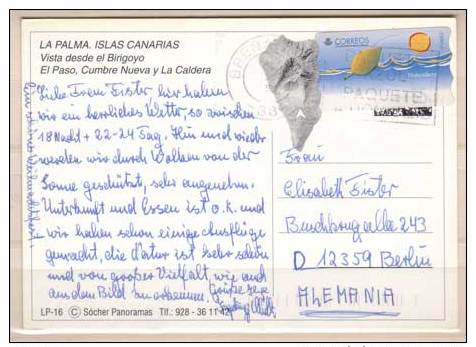 LA PALMA. ISLAS CANARIAS
Vista desde el Birigoyo
El Paso, Cumbre Nueva y La Caldera
Liebe Frau Fister, hier haben
wir ein herrliches Wetter, so zwischen
18 Nacht + 22-24 Tag. Hin und wieder
werden wir durch Wolken von der
Sonne geschützt, sehr angenehm.
Unterkunft und Essen ist o.k. und
wir haben schon einige Ausflüge
gemacht, die Natur ist sehr schön
und von großer Vielfalt, wie auch
aus dem Bild zu erkennen.
Grüße
LP-16 © Söcher Panoramas Tlf.: 928 - 36 11 42
CORREOS
PAQUETE
Frau
Elisabeth Fister
Buschkrugallee 243
D 12359 Berlin
ALEMANIA